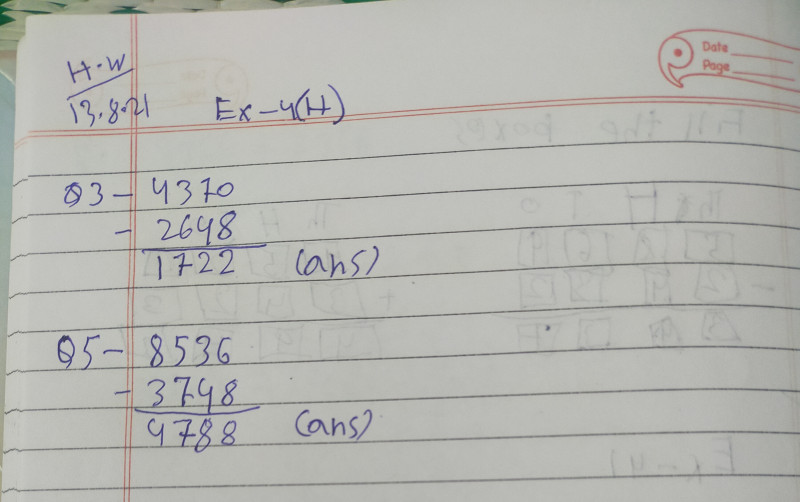 Date
Page
H.W
13.8.21
Ex-4(H)
Q3- 4370
- 2648
1722 (ans)
Q5- 8536
- 3748
4788 (ans)